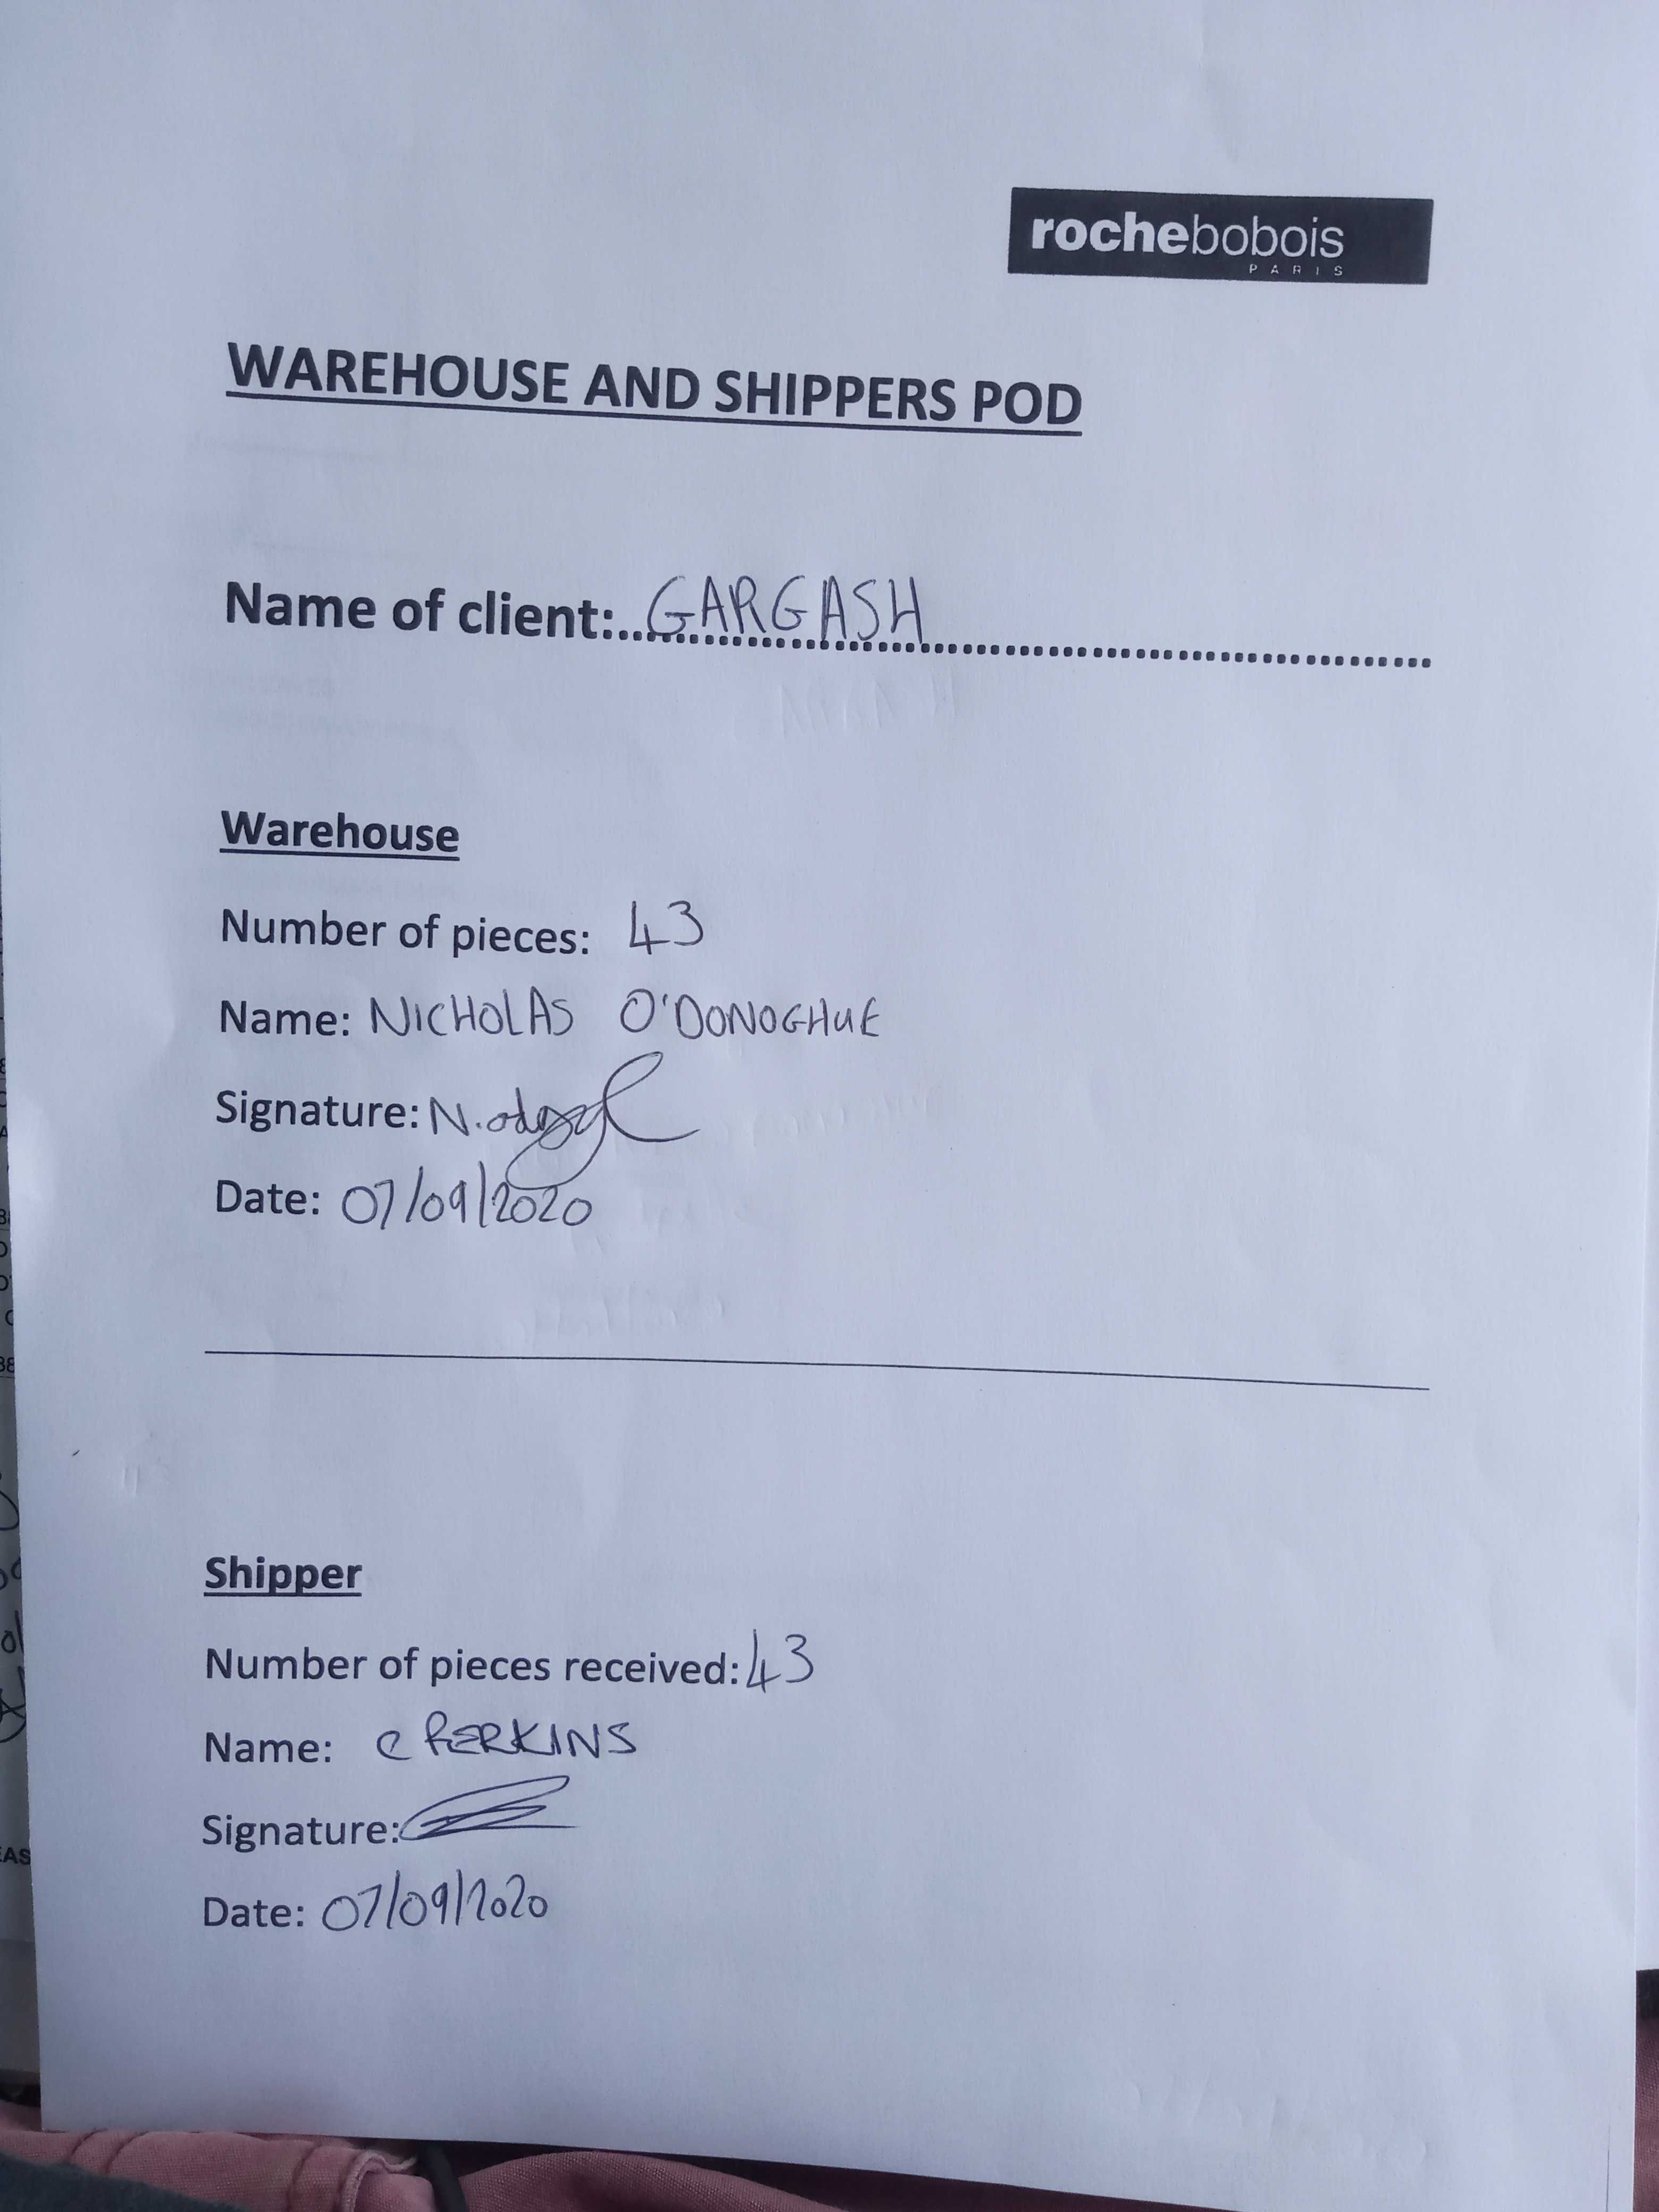 rochebobois
PARIS
WAREHOUSE AND SHIPPERS POD
Name of client:...GARGASH...........................................
Warehouse
Number of pieces: 43
Name: NICHOLAS O'DONOGHUE
Signature:
Date: 07/09/2020
Shipper
Number of pieces received: 43
Name: C PERKINS
Signature:
Date: 07/09/2020